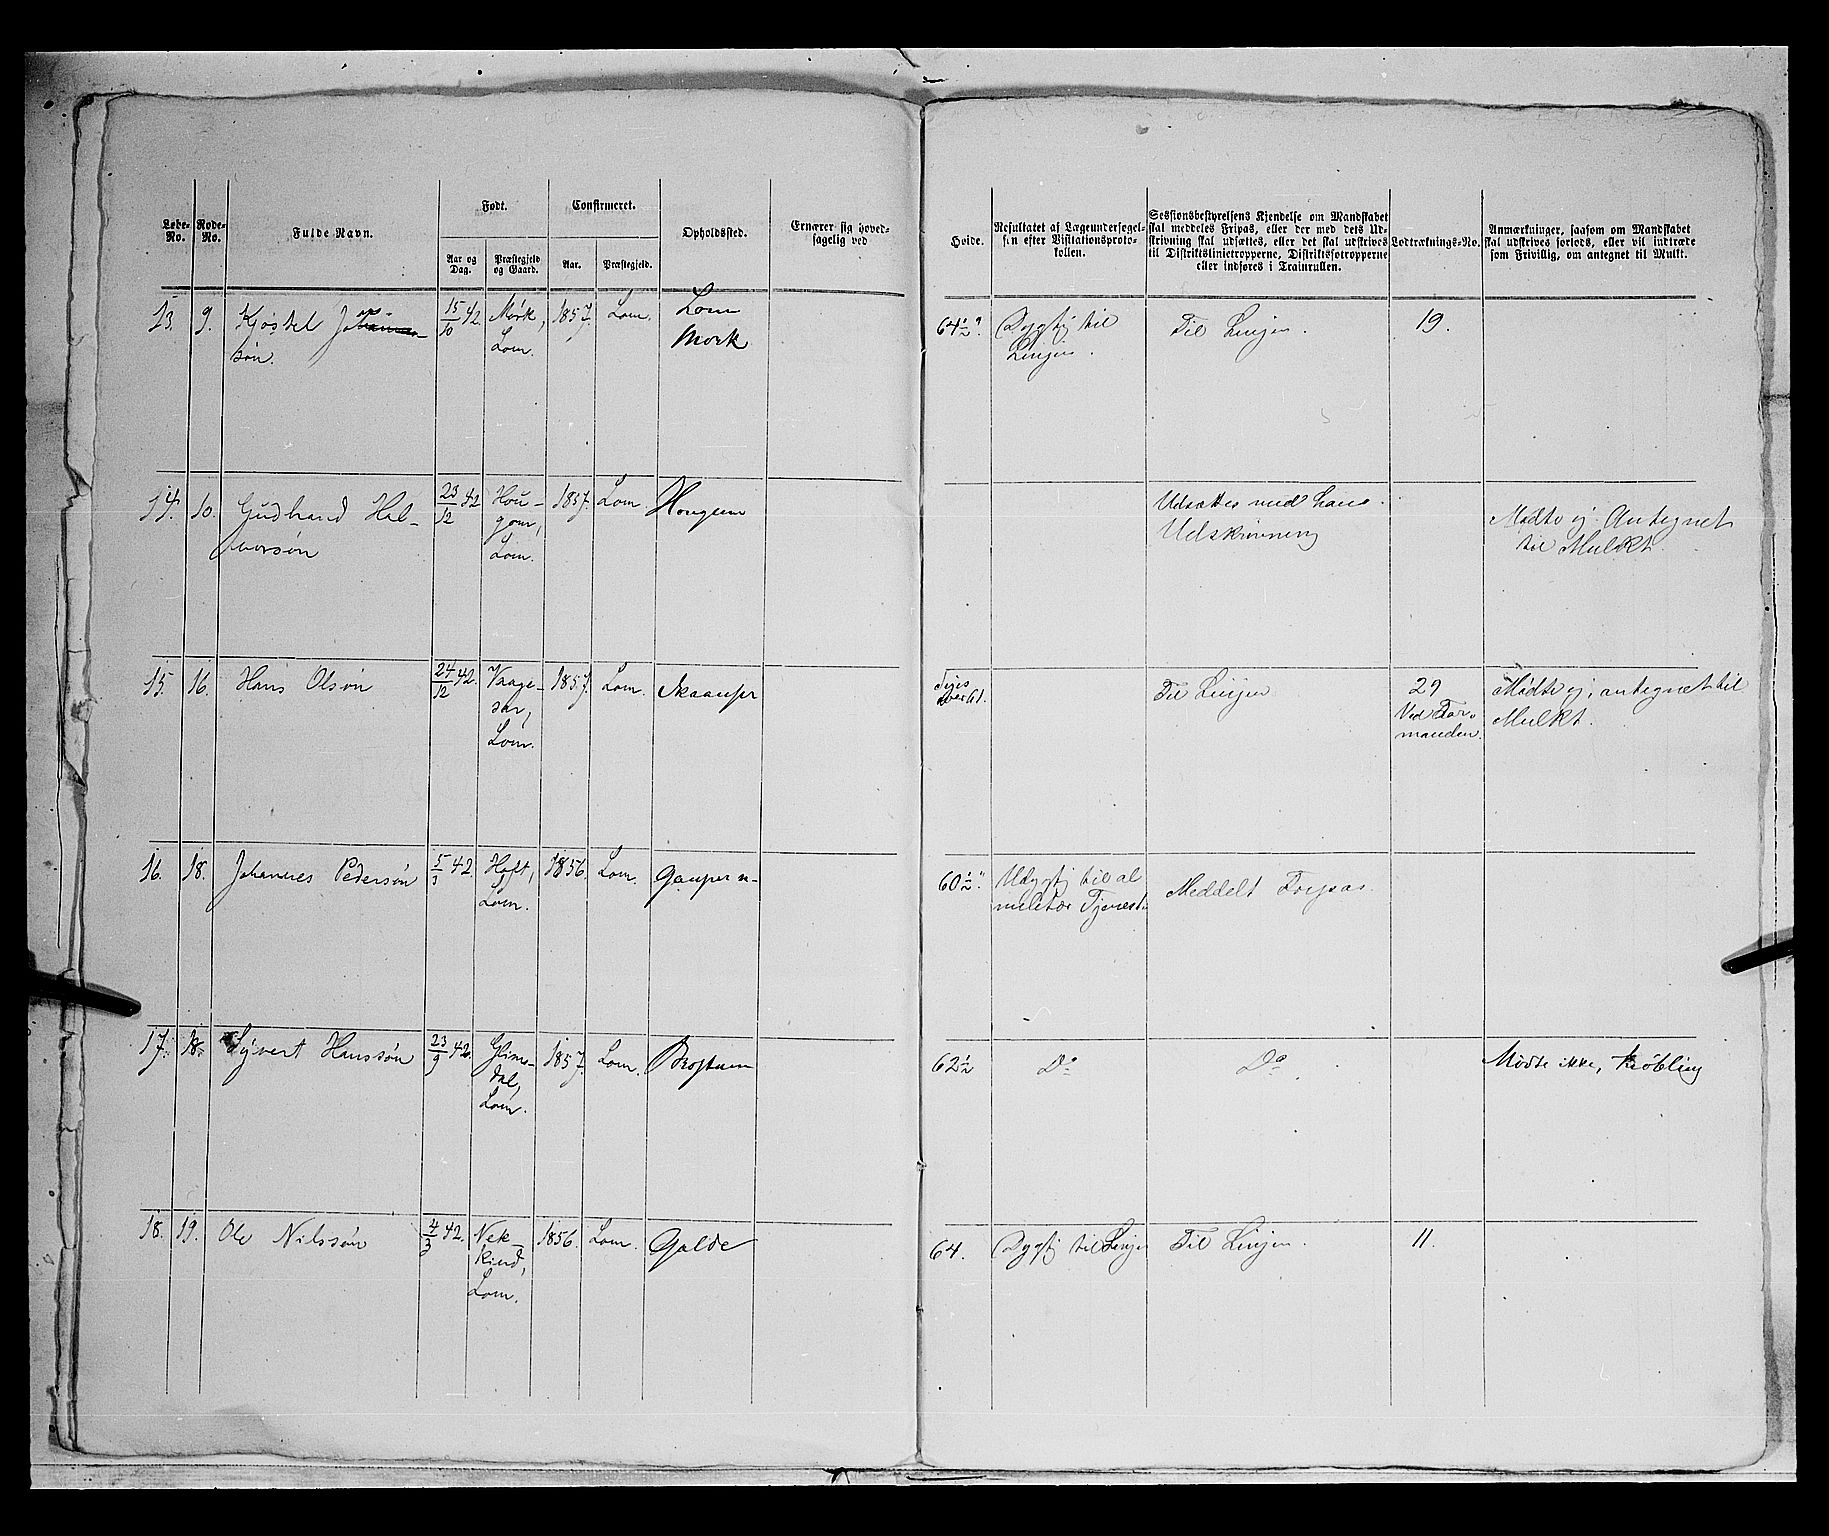 Løbe-No.
Rode-No.
Fulde Navn.
Født.
Aar og Dag.
Præstegjeld og Gaard.
Confirmeret.
Aar.
Præstegjeld.
Opholdssted.
Ernærer sig hoved-
sagelig ved
Høide.
Resultatet af Lægeundersøgel-
sen efter Visitationsproto-
kollen.
Sessionsbestyrelsens Kjendelse om Mandskabet
skal meddeles Fripas, eller der med dets Ud-
skrivning skal udsættes, eller det skal udskrives
til Distriktslinietropperne, Distriktsfotropperne
eller indføres i Trainrullen.
Lodtræknings-No.
Anmærkninger, saasom om Mandskabet
skal udskrives forlods, eller vil indtræde
som Frivillig, om antegnet til Mulkt.
13. 9. Kjøstel 15/10 42. Mork, 1857. Lom. Lom 64 1/2" Dygtig til Til Linjen. 19.
søn. Lom. Mork Linjen.
14. 10. Gudbrand Hal- 23/12 42 Hou- 1857. Lom. Hougum Udsættes med hans Mødte ej. Antegnet
vorsøn gom, Udskrivning til Mulkt.
Lom.
15. 16. Hans Olsøn 24/12 42. Vaage- 1857. Lom. Siges Til Linjen 29 Mødte ej, antegnet til
sar, over 61. Ved For- Mulkt.
Lom. manden.
16. 18. Johannes Pedersøn 5/3 42. Hoft, 1856. Lom. 60 1/2" Udygtig til al Meddelt Fripas.
Lom. militær Tjeneste
17. 18. Syvert Hanssøn 23/9 42. Glim- 1857. Lom. 62 1/2 Do Do Mødte ikke, Krøbling
dal,
Lom.
18. 19. Ole Nilssøn 4/3 42. Nek- 1856. Lom. Galde 64. Dygtig til Linjen Til Linjen. 11.
kind,
Lom.